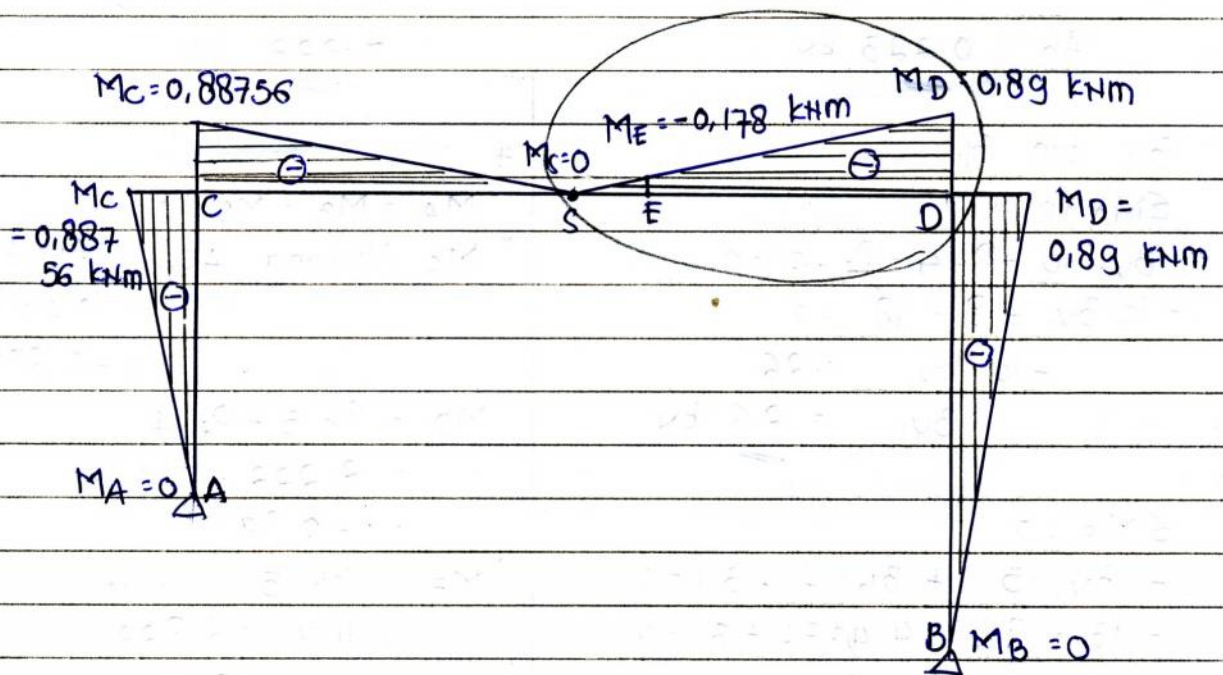 Mc=0,88756
MD=0,89 kNm
ME=-0,178 kNm
Ms=0
⊖
⊖
Mc
= 0,887
56 kNm
C
S
E
D
MD =
0,89 kNm
⊖
⊖
MA =0
A
B
MB =0